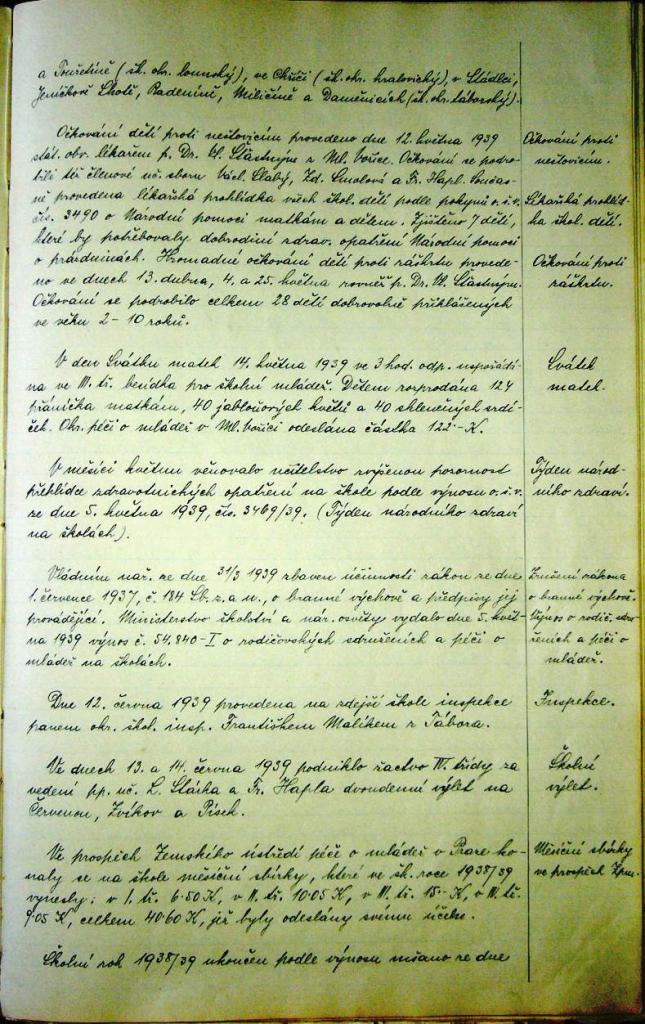 a Touřetíně (šk. okr. lounský), ve Chříči (šk. okr. kralovický), v Sládlci,
Jeníčkově Lhotě, Radeníně, Miličíně a Dameňicích (šk. okr. táborský).
Očkování dětí proti neštovicím provedeno dne 12. května 1939
stát. obv. lékařem p. Dr. Vl. Šťastným z Ml. Vožice. Očkování se podro-
bili též členové uč. sboru Václ. Slabý, Zd. Smolová a Fr. Hapl. Součas-
ně provedena lékařská prohlídka všech škol. dětí podle pokynů o. š. v.
čís. 3490 o Národní pomoci matkám a dětem. Zjištěno 7 dětí,
které by potřebovaly dobrodiní zdrav. opatření Národní pomoci
o prázdninách. Hromadné očkování dětí proti záškrtu provede-
no ve dnech 13. dubna, 4. a 25. května rovněž p. Dr. Vl. Šťastným.
Očkování se podrobilo celkem 28 dětí dobrovolně přihlášených
ve věku 2 - 10 roků.
Očkování proti
neštovicím.
Lékařská prohlíd-
ka škol. dětí.
Očkování proti
záškrtu.
V den Svátku matek 14. května 1939 ve 3 hod. odp. uspořádá-
na ve III. tř. besídka pro školní mládež. Dětem rozprodána 124
přáníčka matkám, 40 jabloňových květů a 40 skleněných srdí-
ček. Okr. péči o mládež v Ml. Vožici odeslána částka 122·- K.
Svátek
matek.
V měsíci květnu věnovalo učitelstvo zvýšenou pozornost
přehlídce zdravotnických opatření na škole podle výnosu o. š. v.
ze dne 5. května 1939, čís. 3469/39. (Týden národního zdraví
na školách).
Týden národ-
ního zdraví.
Vládním nař. ze dne 31/3 1939 zbaven účinnosti zákon ze dne
1. července 1937, č. 184 Sb. z. a n., o branné výchově a předpisy jej
provádějící. Ministerstvo školství a nár. osvěty vydalo dne 5. květ-
na 1939 výnos č. 54.840-I o rodičovských sdruženích a péči o
mládež na školách.
Zrušení zákona
o branné výchově.
Výnos o rodič. sdru-
ženích a péči o
mládež.
Dne 12. června 1939 provedena na zdejší škole inspekce
panem okr. škol. insp. Františkem Malíkem z Tábora.
Inspekce.
Ve dnech 13. a 14. června 1939 podniklo žactvo IV. třídy za
vedení pp. uč. L. Stárka a Fr. Hapla dvoudenní výlet na
Červenou, Zvíkov a Písek.
Školní
výlet.
Ve prospěch Zemského ústředí péče o mládež v Praze ko-
naly se na škole měsíční sbírky, které ve šk. roce 1938/39
vynesly: v I. tř. 6·50 K, v II. tř. 10·05 K, v III. tř. 15·- K, v IV. tř.
9·05 K, celkem 40·60 K, jež byly odeslány svému účelu.
Měsíční sbírky
ve prospěch Zpm.
Školní rok 1938/39 ukončen podle výnosu mšano ze dne